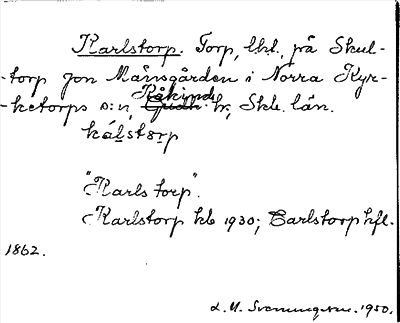 Karlstorp. Torp, lht., på Skul-
-torp jon Månsgården i Norra Kyr-
-ketorps s:n, Kåkinds hr, Skb. län.
kálstorp
"Karls torp".
Karlstorp kb 1930; Carlstorp hfl.
1862.
L. M. Svenungson. 1950.